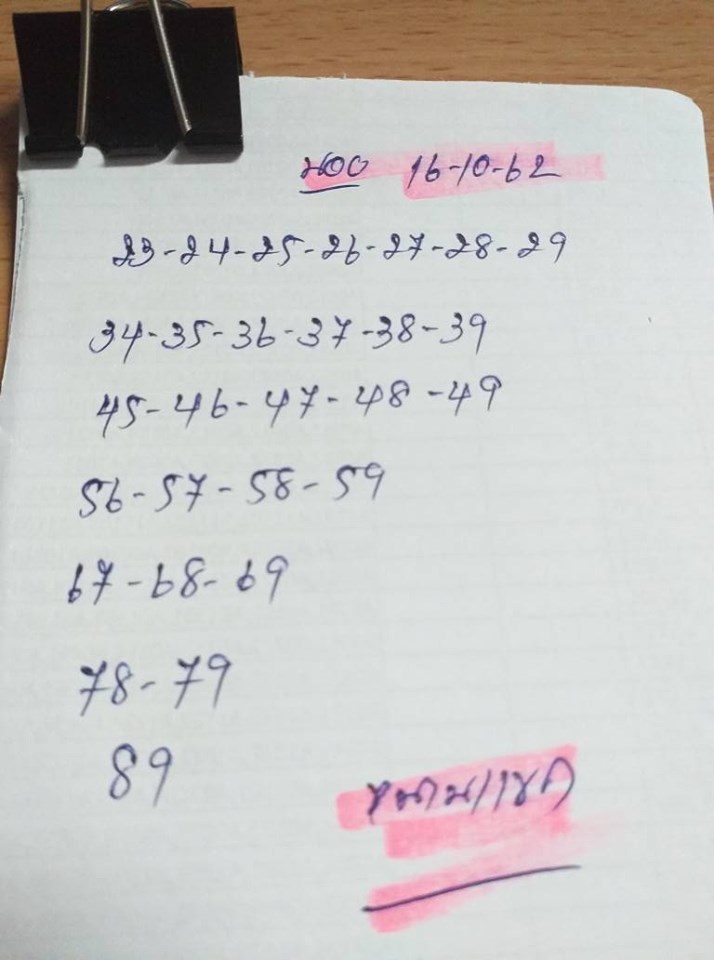 งวด 16-10-62
23-24-25-26-27-28-29
34-35-36-37-38-39
45-46-47-48-49
56-57-58-59
67-68-69
78-79
89